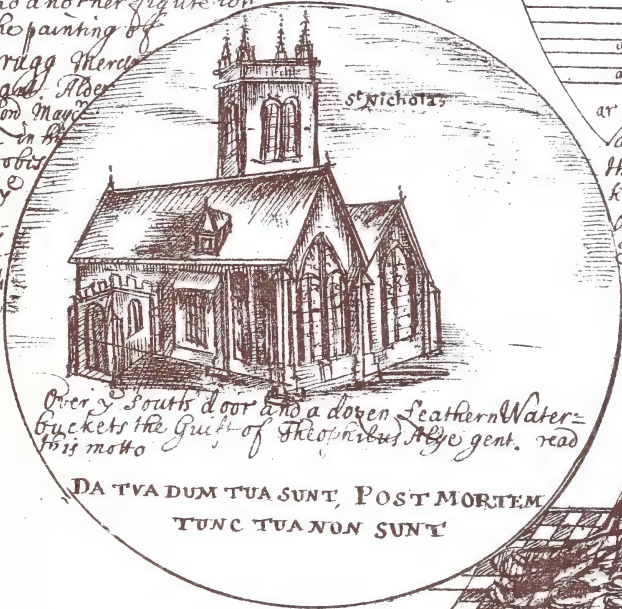 no another figure
the painting of
rugg Merce
Alder
Lord Mayr
in
obis
yᵉ
Sᵗ Nicholas
ar
Over yͤ South door and a dozen Leathern Water=
buckets the Guift of Theophilus Alye gent. read
this motto
DA TVA DUM TUA SUNT, POST MORTEM
TUNC TUA NON SUNT